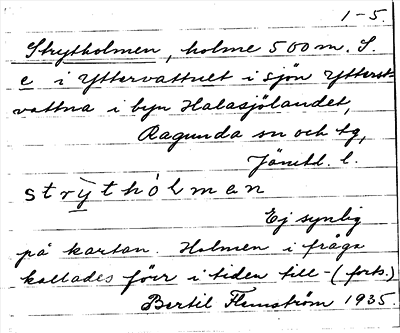 1-5.
Strytholmen, holme 500 m. S.
e i Yttervattnet i sjön Ytterst-
vattna i byn Halasjölandet,
Ragunda sn och tg,
Jämtl. l.
strỳthòlmen
Ej synlig
på kartan. Holmen i fråga
kallades förr i tiden till - (forts.)
Bertil Flemström 1935.